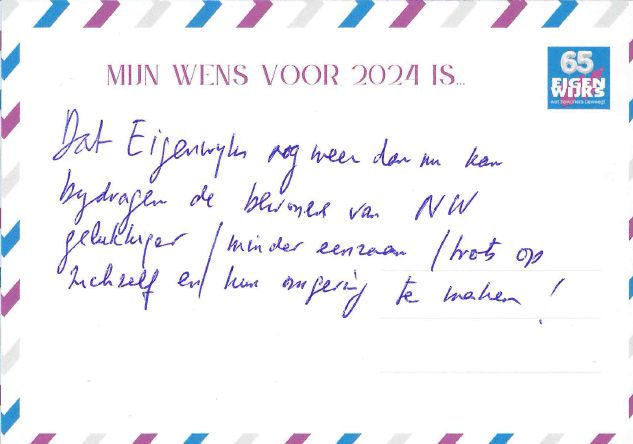 MIJN WENS VOOR 2024 IS...
65
EIGEN
WIJKS
wat bewoners beweegt
Dat Eigenwijks nog meer dan nu kan
bijdragen de bewoners van NW
gelukkiger / minder eenzaam / trots op
zichzelf en hun omgeving te maken!